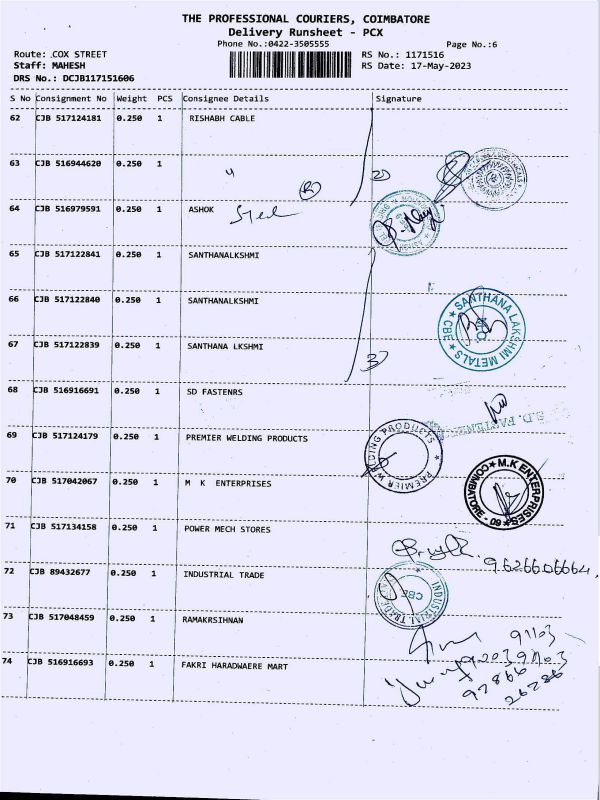 THE PROFESSIONAL COURIERS, COIMBATORE
Delivery Runsheet - PCX
Phone No.:0422-3505555
Page No.:6
Route: COX STREET
RS No.: 1171516
Staff: MAHESH
RS Date: 17-May-2023
DRS No.: DCJB117151606
S No Consignment No Weight PCS Consignee Details Signature
62 CJB 517124181 0.250 1 RISHABH CABLE
63 CJB 516944620 0.250 1 "
64 CJB 516979591 0.250 1 ASHOK Steel
65 CJB 517122841 0.250 1 SANTHANALKSHMI
66 CJB 517122840 0.250 1 SANTHANALKSHMI
SANTHANA LAKSHMI METALS ★ CBE ★
67 CJB 517122839 0.250 1 SANTHANA LKSHMI
68 CJB 516916691 0.250 1 SD FASTENRS
S.D. FASTENERS
69 CJB 517124179 0.250 1 PREMIER WELDING PRODUCTS
PREMIER WELDING PRODUCTS
70 CJB 517042067 0.250 1 M K ENTERPRISES
M.K ENTERPRISES COIMBATORE - 09
71 CJB 517134158 0.250 1 POWER MECH STORES
9626606664
72 CJB 89432677 0.250 1 INDUSTRIAL TRADE
INDUSTRIAL TRADE CBE
73 CJB 517048459 0.250 1 RAMAKRSIHNAN
91103
74 CJB 516916693 0.250 1 FAKRI HARADWAERE MART
92866
26286